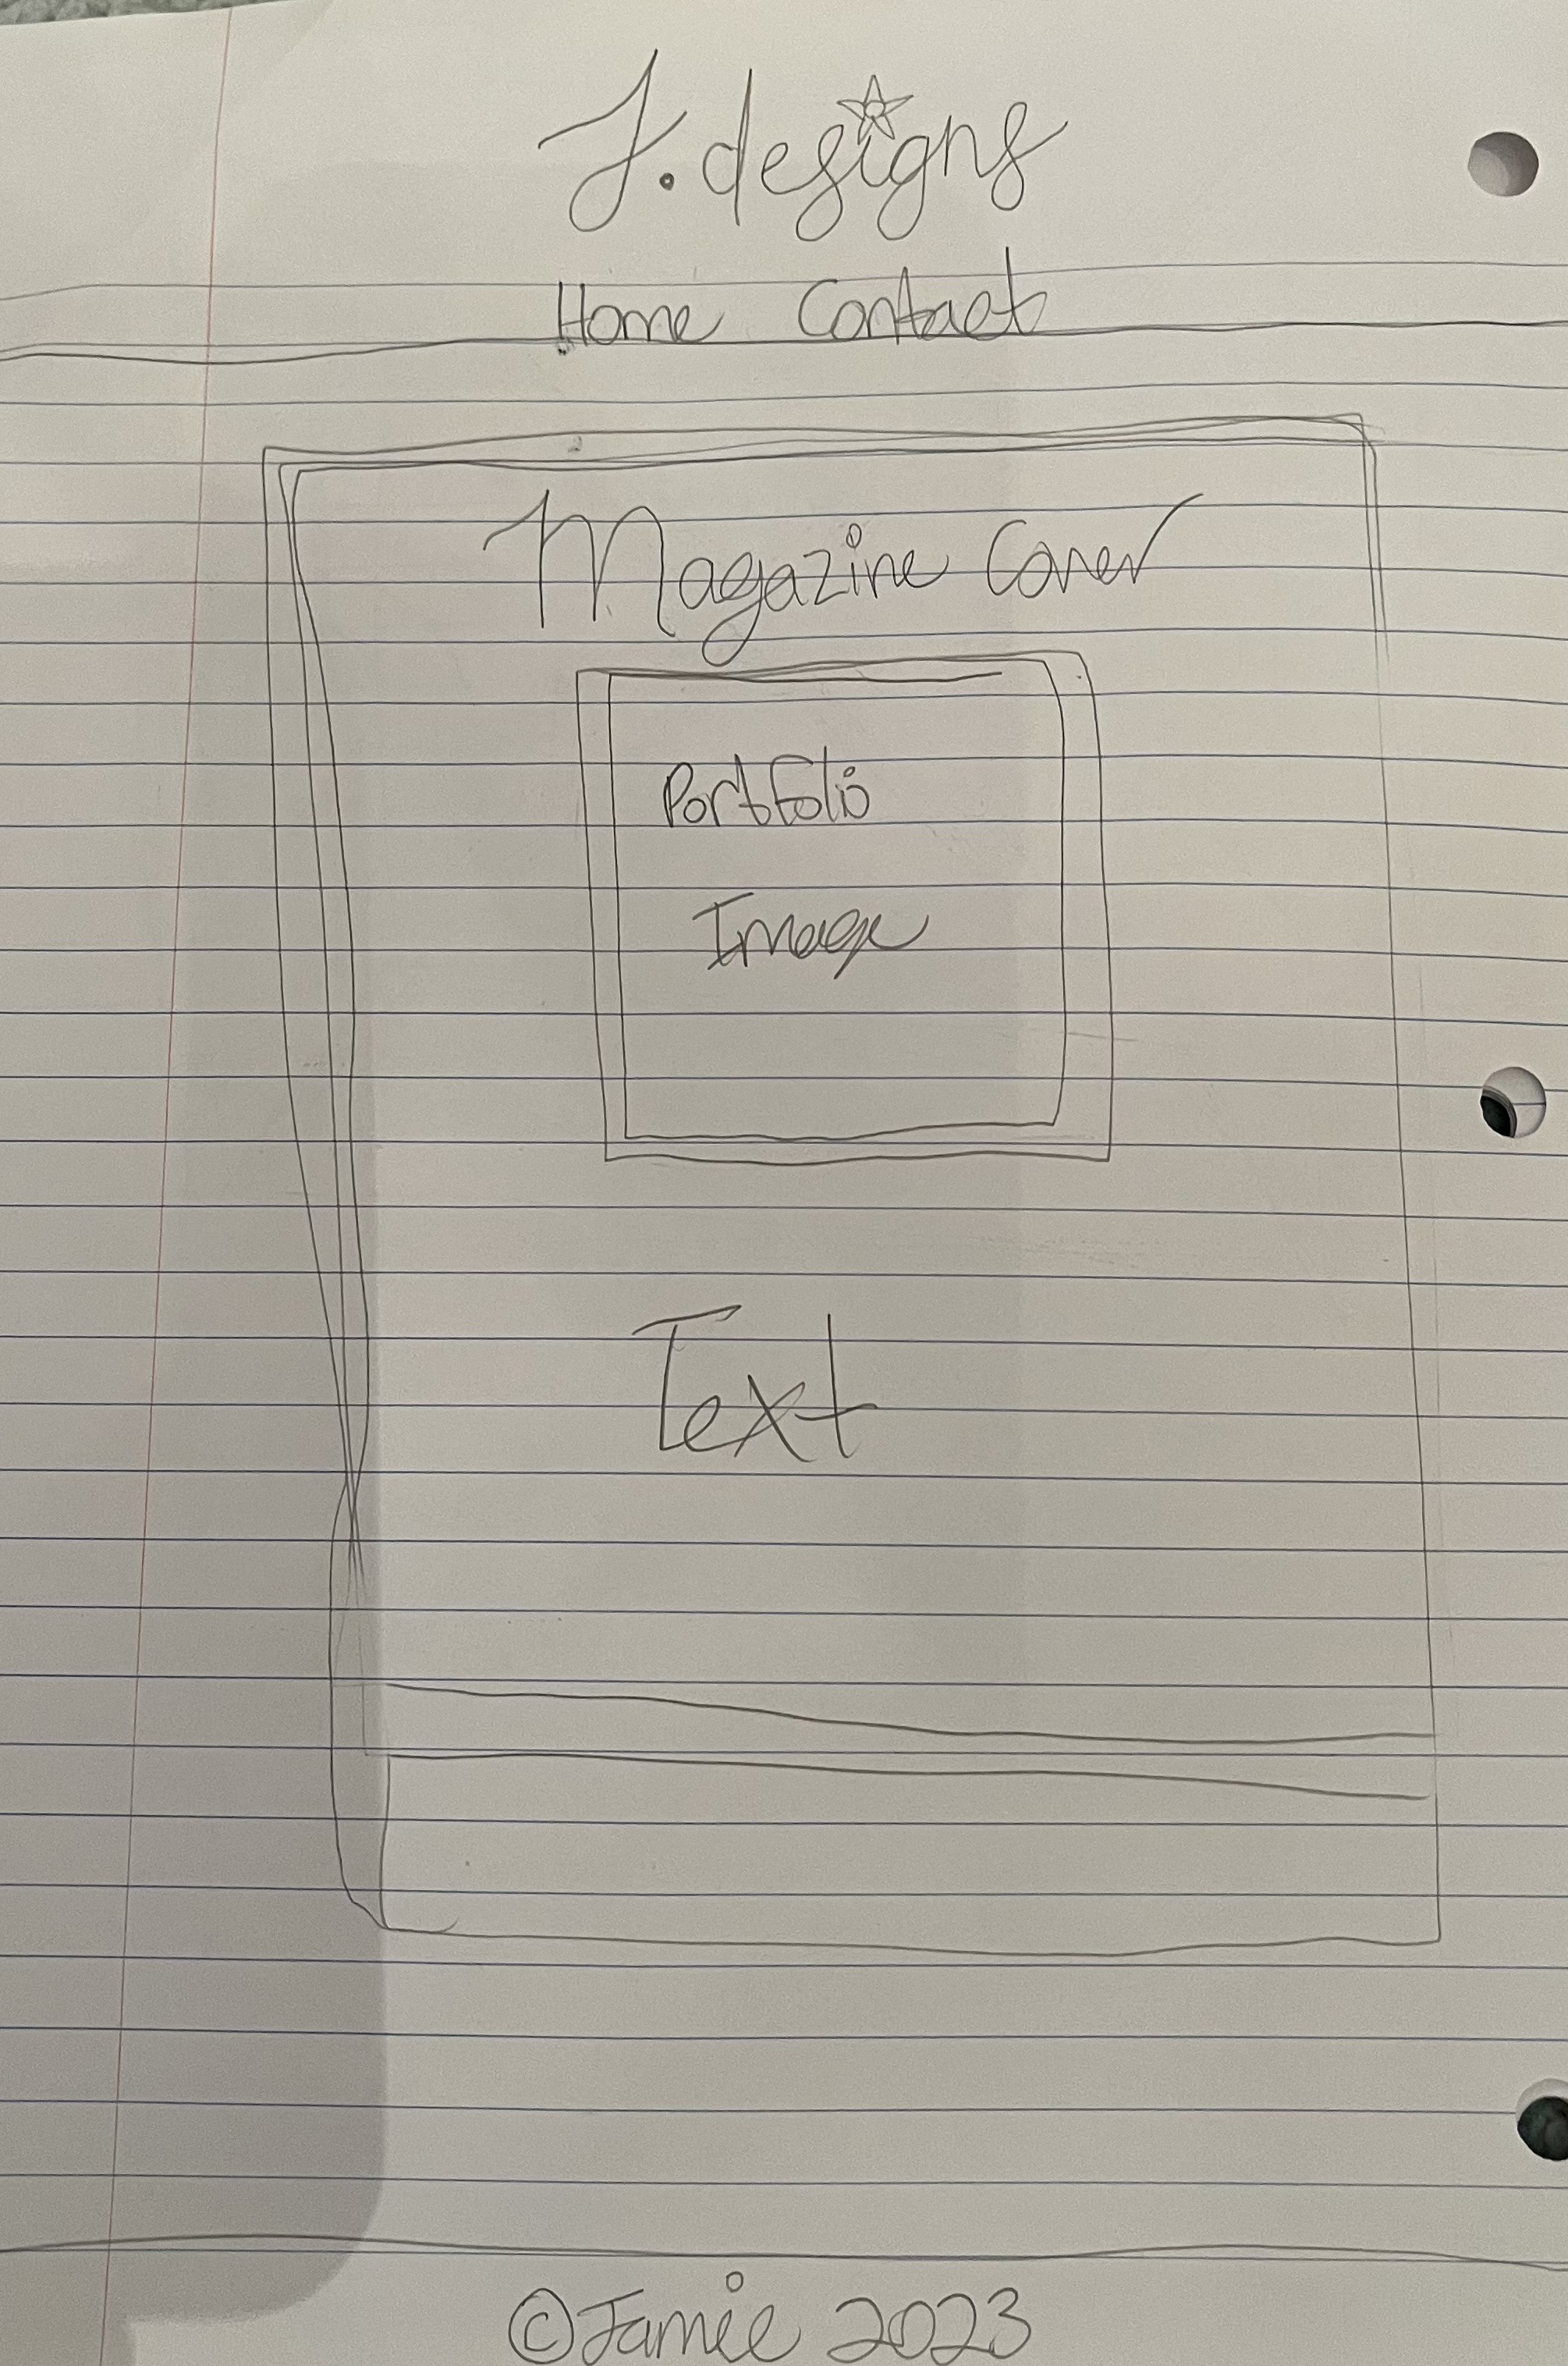 J.designs
Home Contact
Magazine Cover
Portfolio
Image
Text
©Jamie 2023